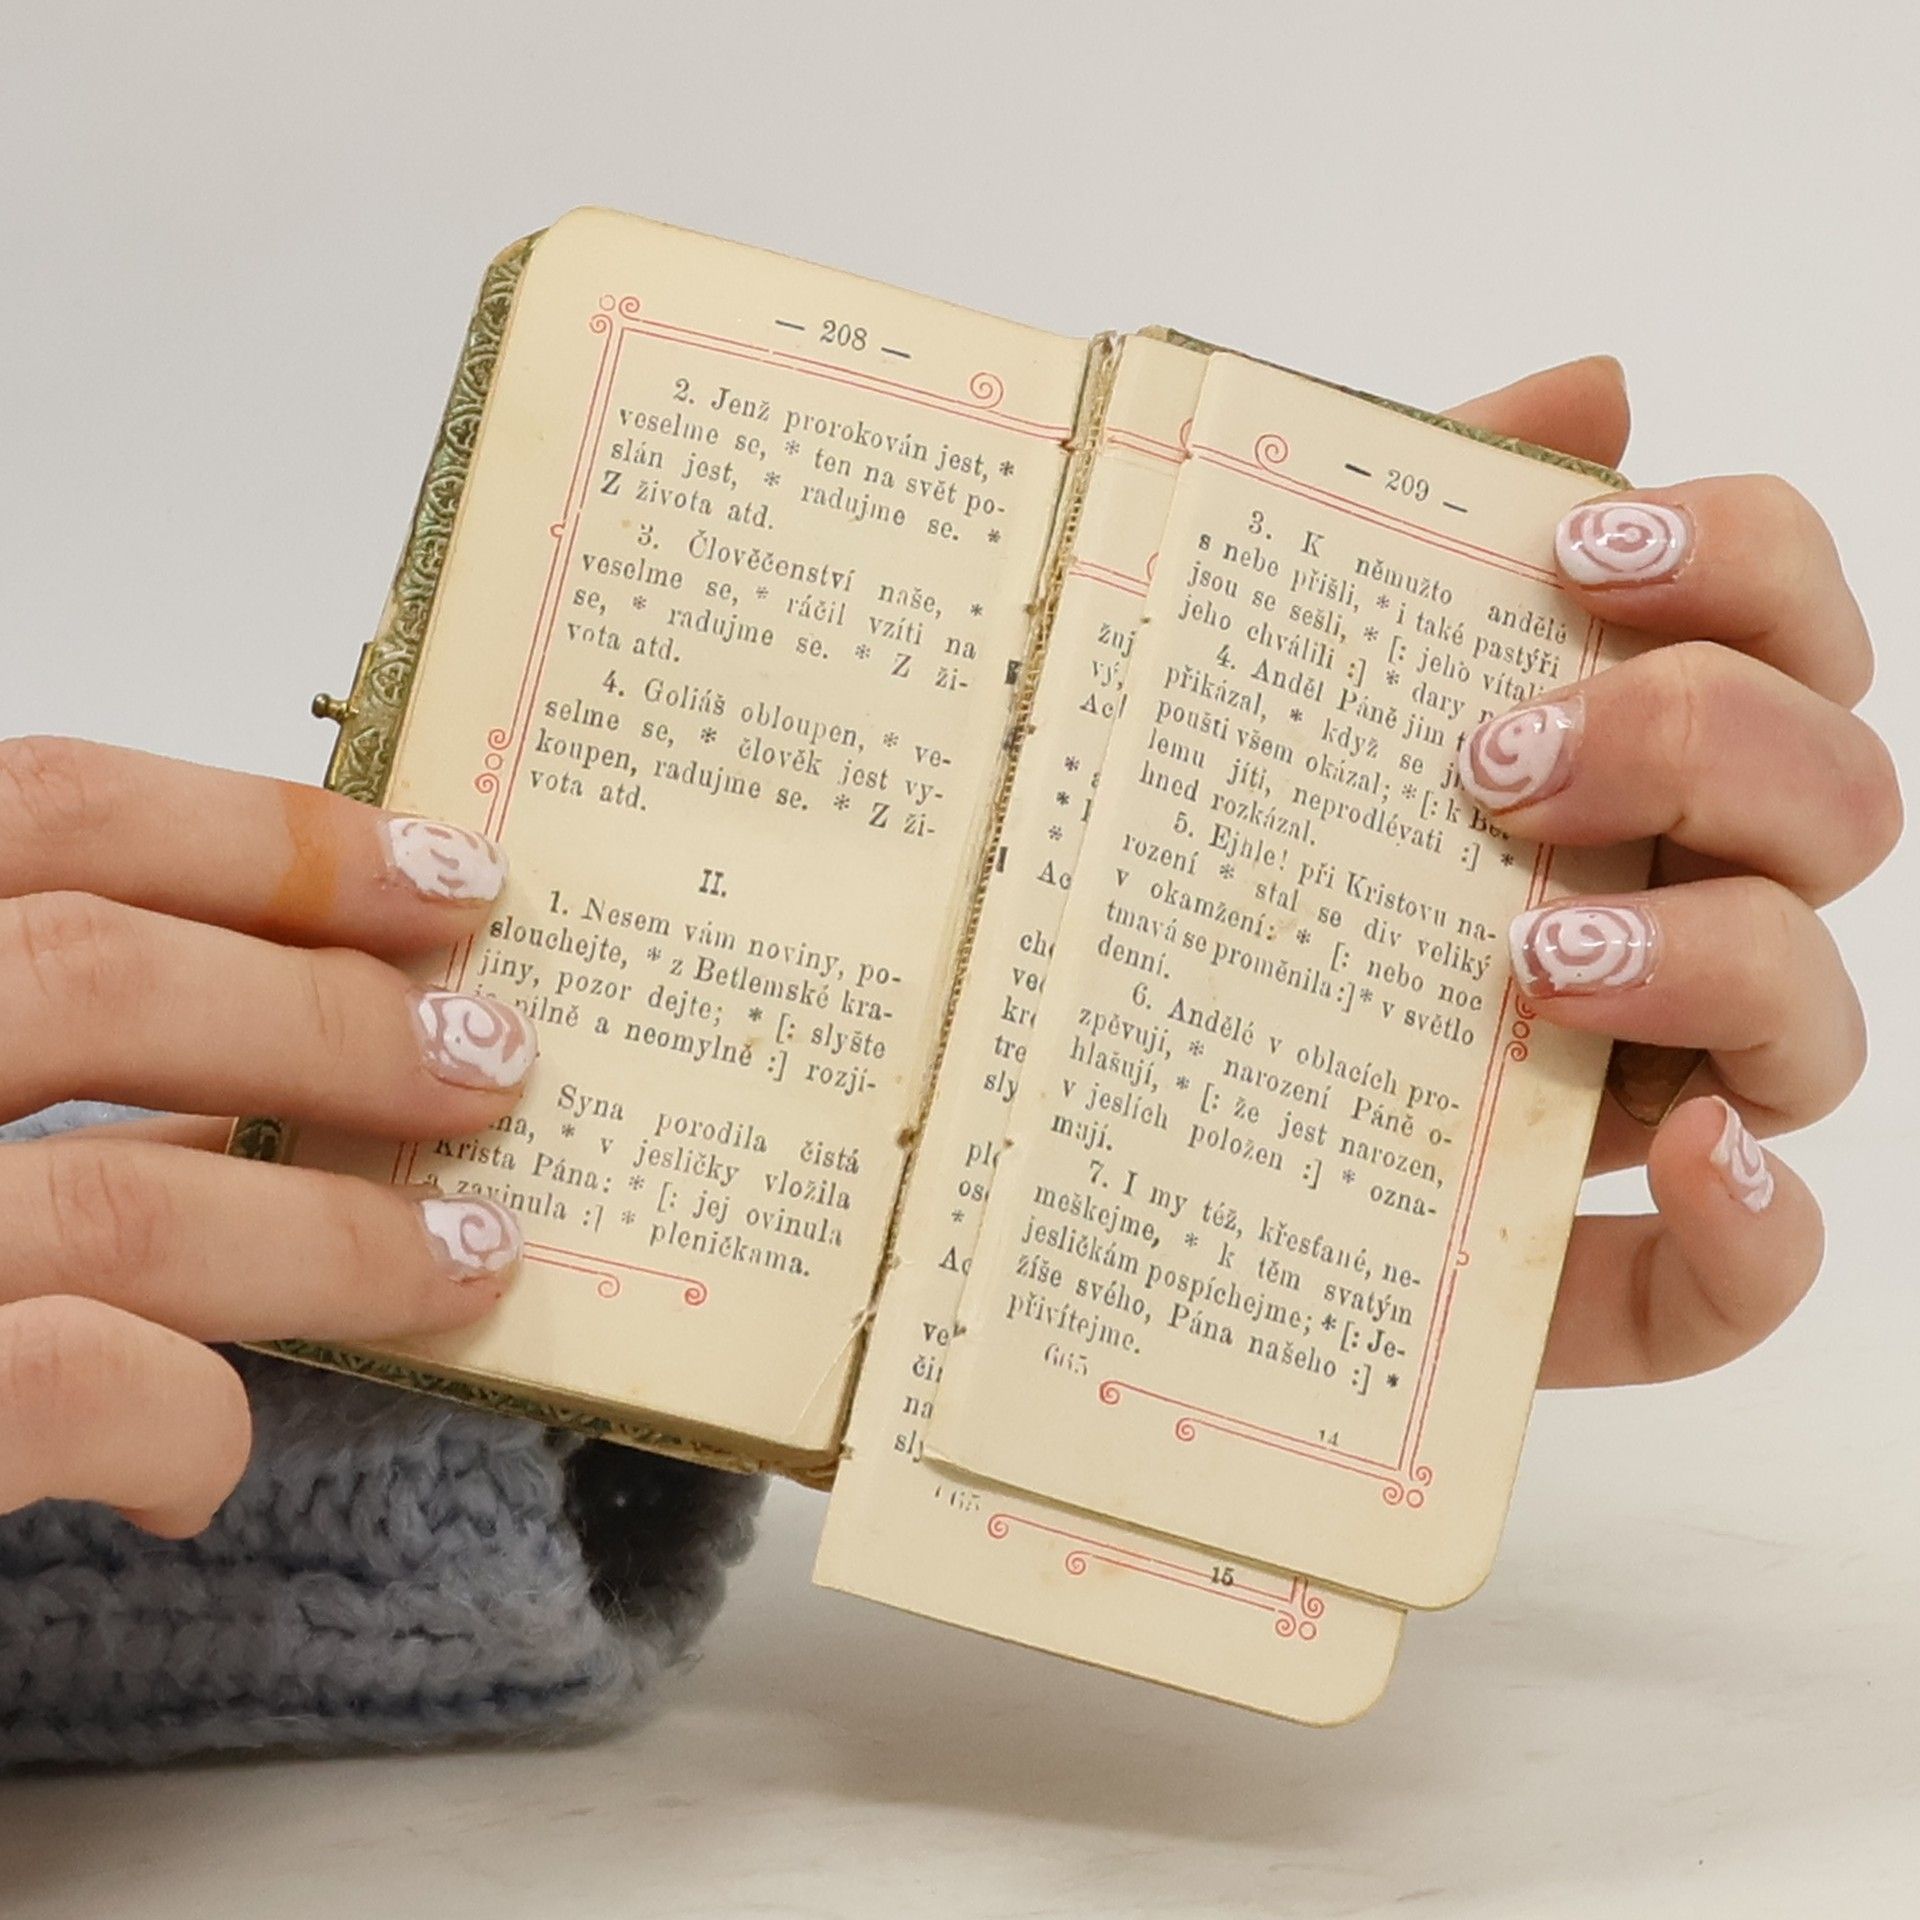 — 208 —
2. Jenž prorokován jest, *
veselme se, * ten na svět po-
slán jest, * radujme se. *
Z života atd.
3. Člověčenství naše, *
veselme se, * ráčil vzíti na
se, * radujme se. * Z ži-
vota atd.
4. Goliáš obloupen, * ve-
selme se, * člověk jest vy-
koupen, radujme se. * Z ži-
vota atd.
II.
1. Nesem vám noviny, po-
slouchejte, * z Betlemské kra-
jiny, pozor dejte; * [: slyšte
pilně a neomylně :] rozjí-
Syna porodila čistá
* v jesličky vložila
Krista Pána: * [: jej ovinula
a zavinula :] * pleničkama.
žnj
vý,
* 
*
*
ve
kr
tre
sly
*
na
665
15
— 209 —
3. K němužto andělé
s nebe přišli, * i také pastýři
jsou se sešli, * [: jeho vítali
jeho chválili :] * dary
4. Anděl Páně jim
přikázal, * když se
poušti všem okázal; * [: k
lemu jíti, neprodlévati :] *
hned rozkázal.
5. Ejhle! při Kristovu na-
rození * stal se div veliký
v okamžení: * [: nebo noc
tmavá se proměnila :] * v světlo
denní.
6. Andělé v oblacích pro-
zpěvují, * narození Páně o-
hlašují, * [: že jest narozen,
v jeslích položen :] * ozna-
mují.
7. I my též, křesťané, ne-
meškejme, * k těm svatým
jesličkám pospíchejme; * [: Je-
žíše svého, Pána našeho :] *
přivítejme.
665
14